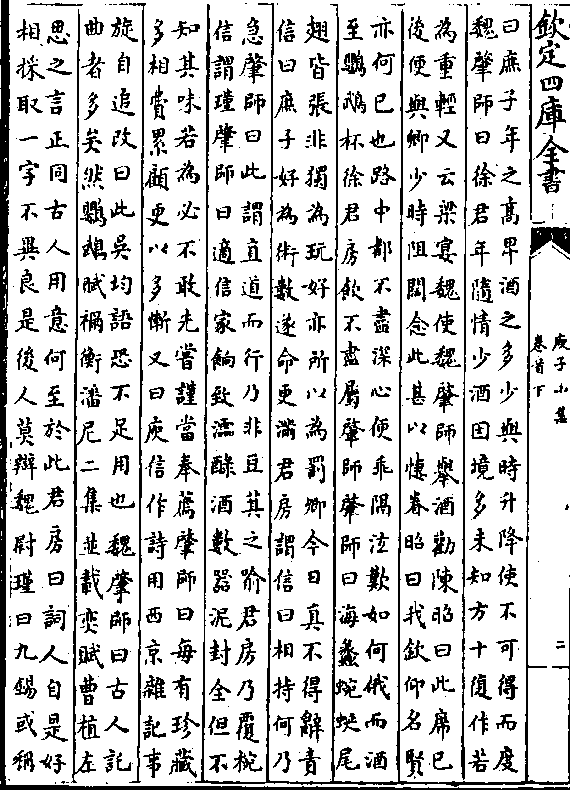 欽定四庫全書
庾子山集
卷首下
二
曰庶子年之高卑酒之多少與時升降使不可得而度
魏肇師曰徐君年隨情少酒因境多未知方十復作若
為重輕又云梁宴魏使魏肇師舉酒勸陳昭曰此席已
後便與卿少時阻闊念此甚以悽眷昭曰我欽仰名賢
亦何已也路中都不盡深心便乖隔泣歎如何俄而酒
至鸚鵡杯徐君房飲不盡屬肇師肇師曰海蠡蜿蜒尾
翅皆張非獨為玩好亦所以為罰卿今日真不得辭責
信曰庶子好為術數遂命更滿君房謂信曰相持何乃
急肇師曰此謂直道而行乃非豆萁之喻君房乃覆椀
信謂瑾肇師曰適信家餉致濡醁酒數器泥封全但不
知其味若為必不敢先嘗謹當奉薦肇師曰每有珍藏
多相費累顧更以多慚又曰庾信作詩用西京雜記事
旋自追改曰此吳均語恐不足用也魏肇師曰古人託
曲者多矣然鸚鵡賦禰衡潘尼二集並載奕賦曹植左
思之言正同古人用意何至於此君房曰詞人自是好
相採取一字不異良是後人莫辯魏尉瑾曰九錫或稱